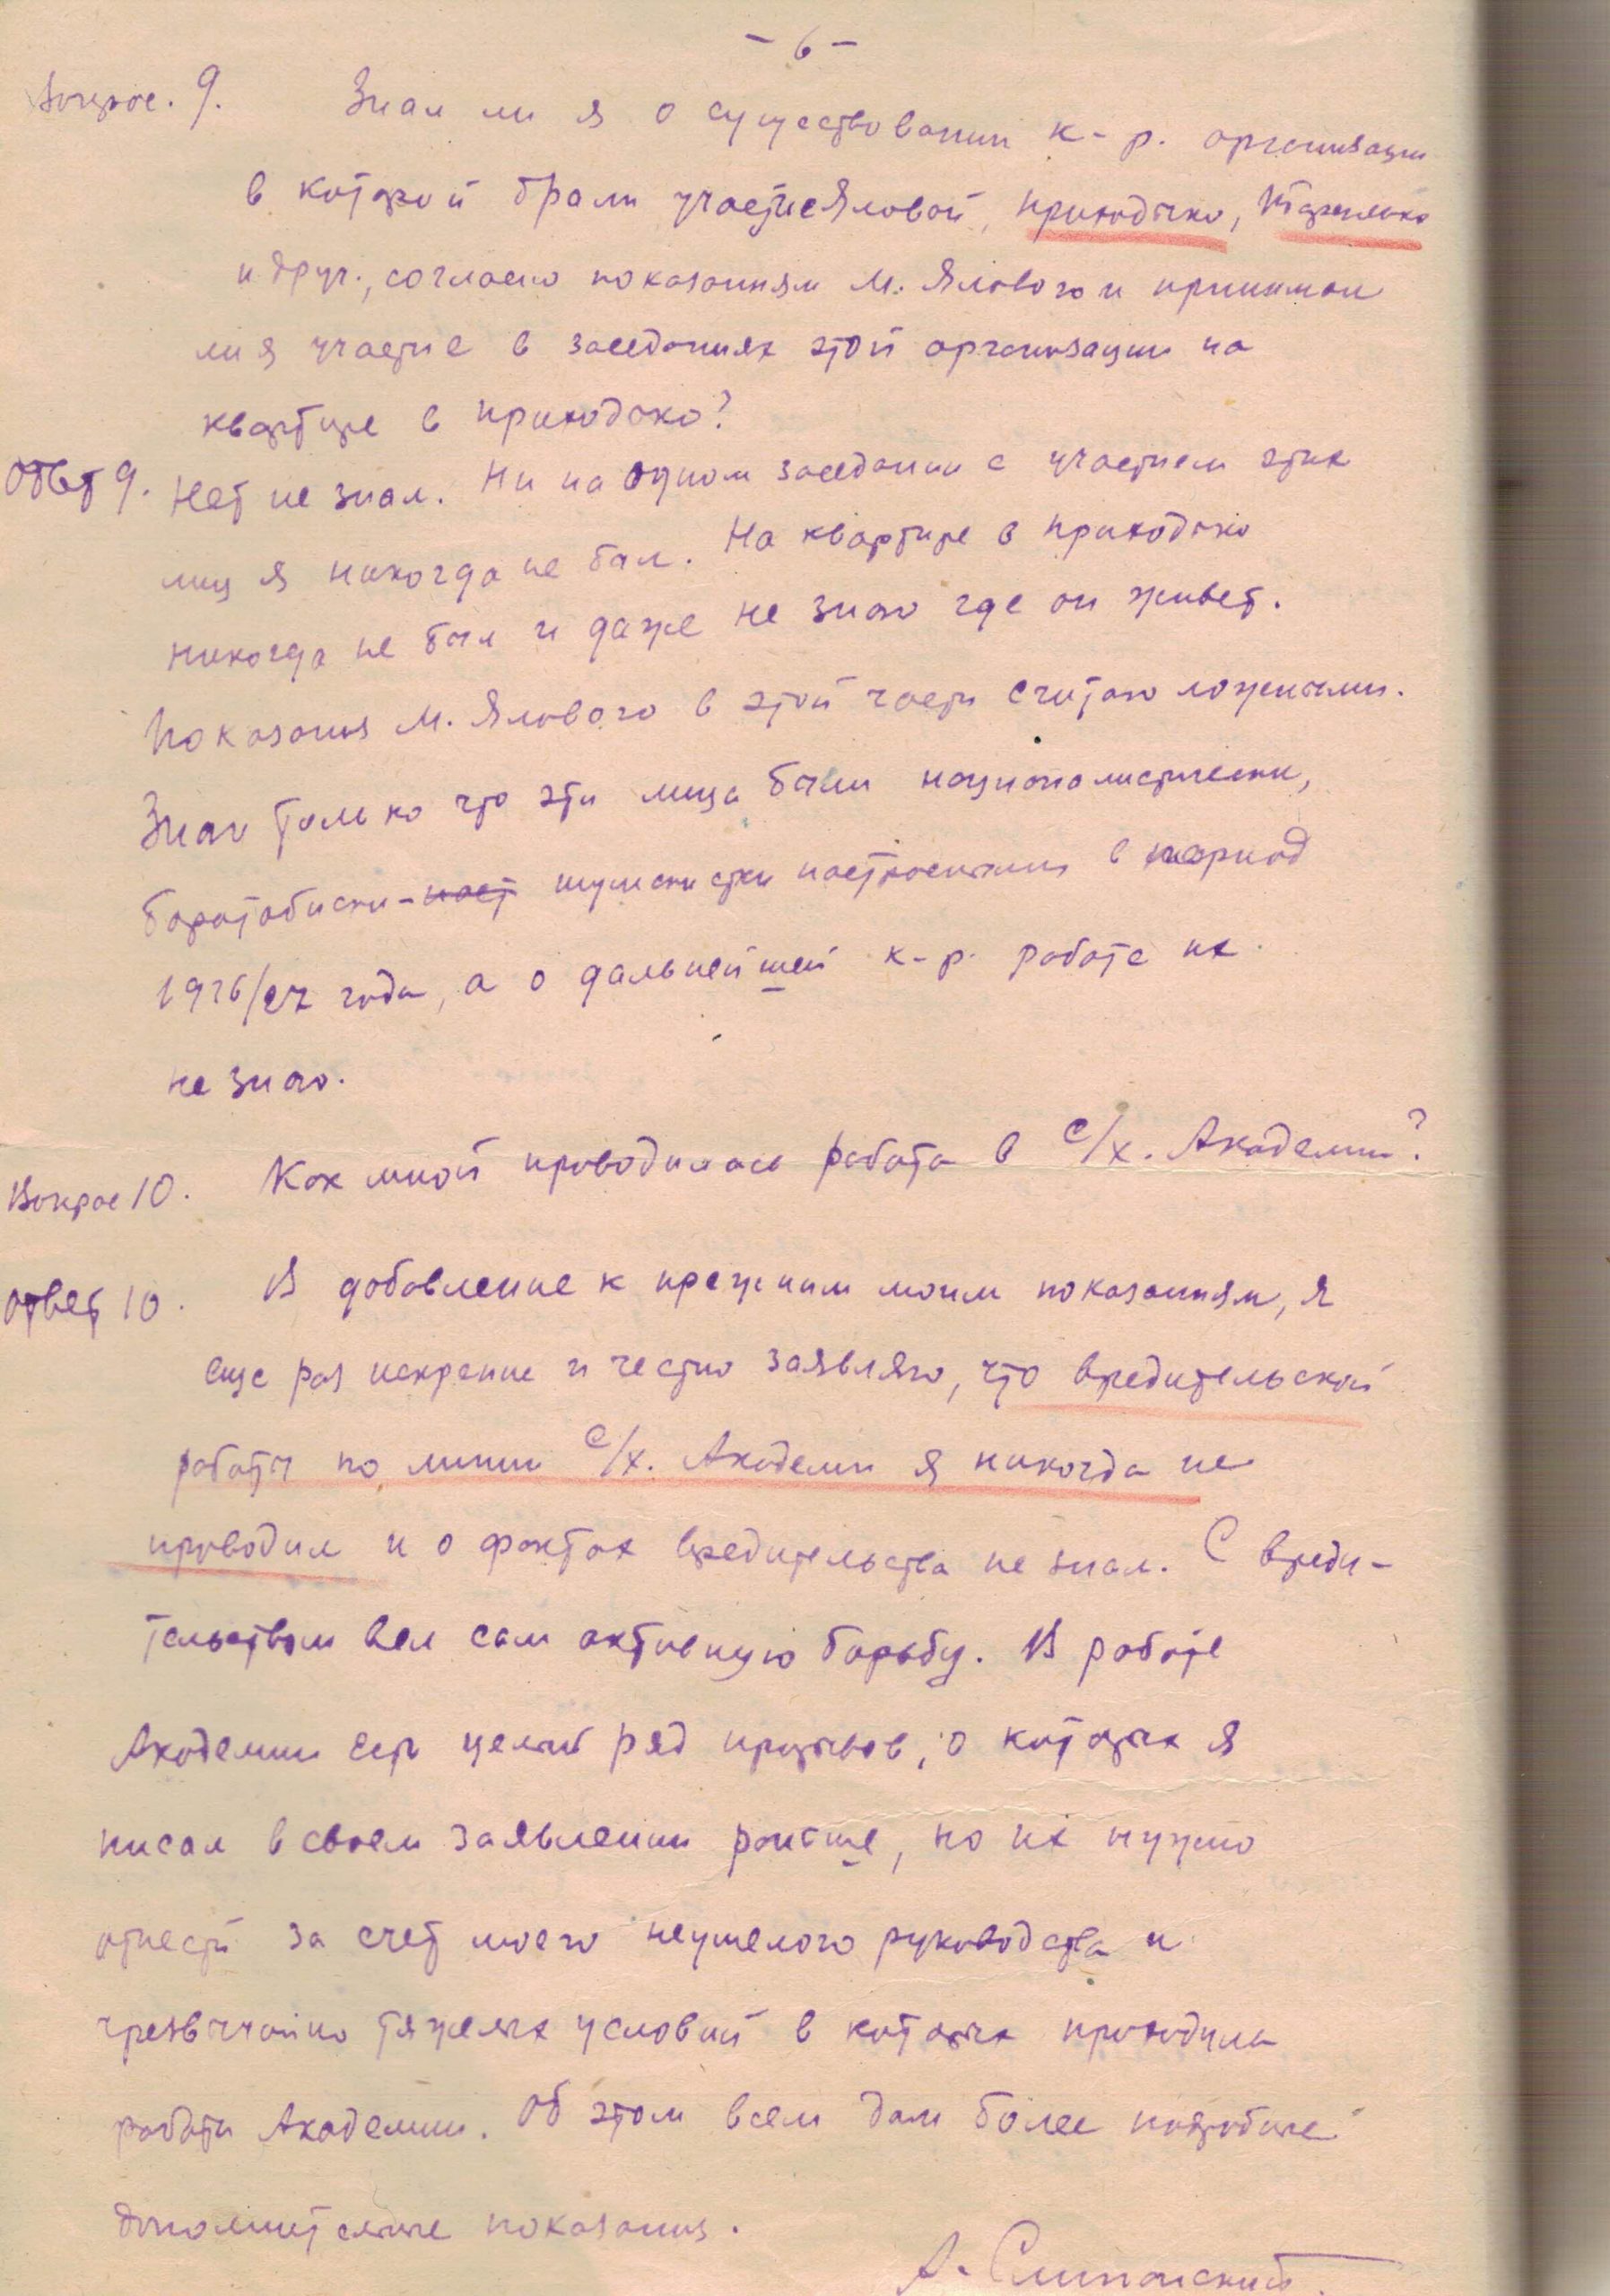 - 6 -
Вопрос. 9. Знал ли я о существовании к-р. организации
в которой брали участие Яловой, Приходько,
и друг., согласно показаниям М. Ялового и принимал
ли я участие в заседаниях этой организации на
квартире в Приходько?
Ответ 9. Нет не знал. Ни на одном заседании с участием этих
лиц я никогда не был. На квартире в Приходько
никогда не был и даже не знаю где он живет.
Показания М. Ялового в этой части считаю ложными.
Знаю только что эти лица были националистически,
боротьбистски-наст шумскистски настроенными в период
1926/27 года, а о дальнейшей к-р. работе их
не знаю.
Вопрос 10. Как мной проводилась работа в с/х. Академии?
Ответ 10. В добавление к прежним моим показаниям, я
еще раз искренне и честно заявляю, что вредительской
работы по линии с/х. Академии я никогда не
проводил и о фактах вредительства не знал. С вреди-
тельством вел сам активную борьбу. В работе
Академии есть целый ряд прорывов, о которых я
писал в своем заявлении раньше, но их нужно
отнести за счет моего неумелого руководства и
чрезвычайно тяжелых условий в которых проходила
работа Академии. Об этом всем дам более подробные
дополнительные показания.
А. Слипанский.